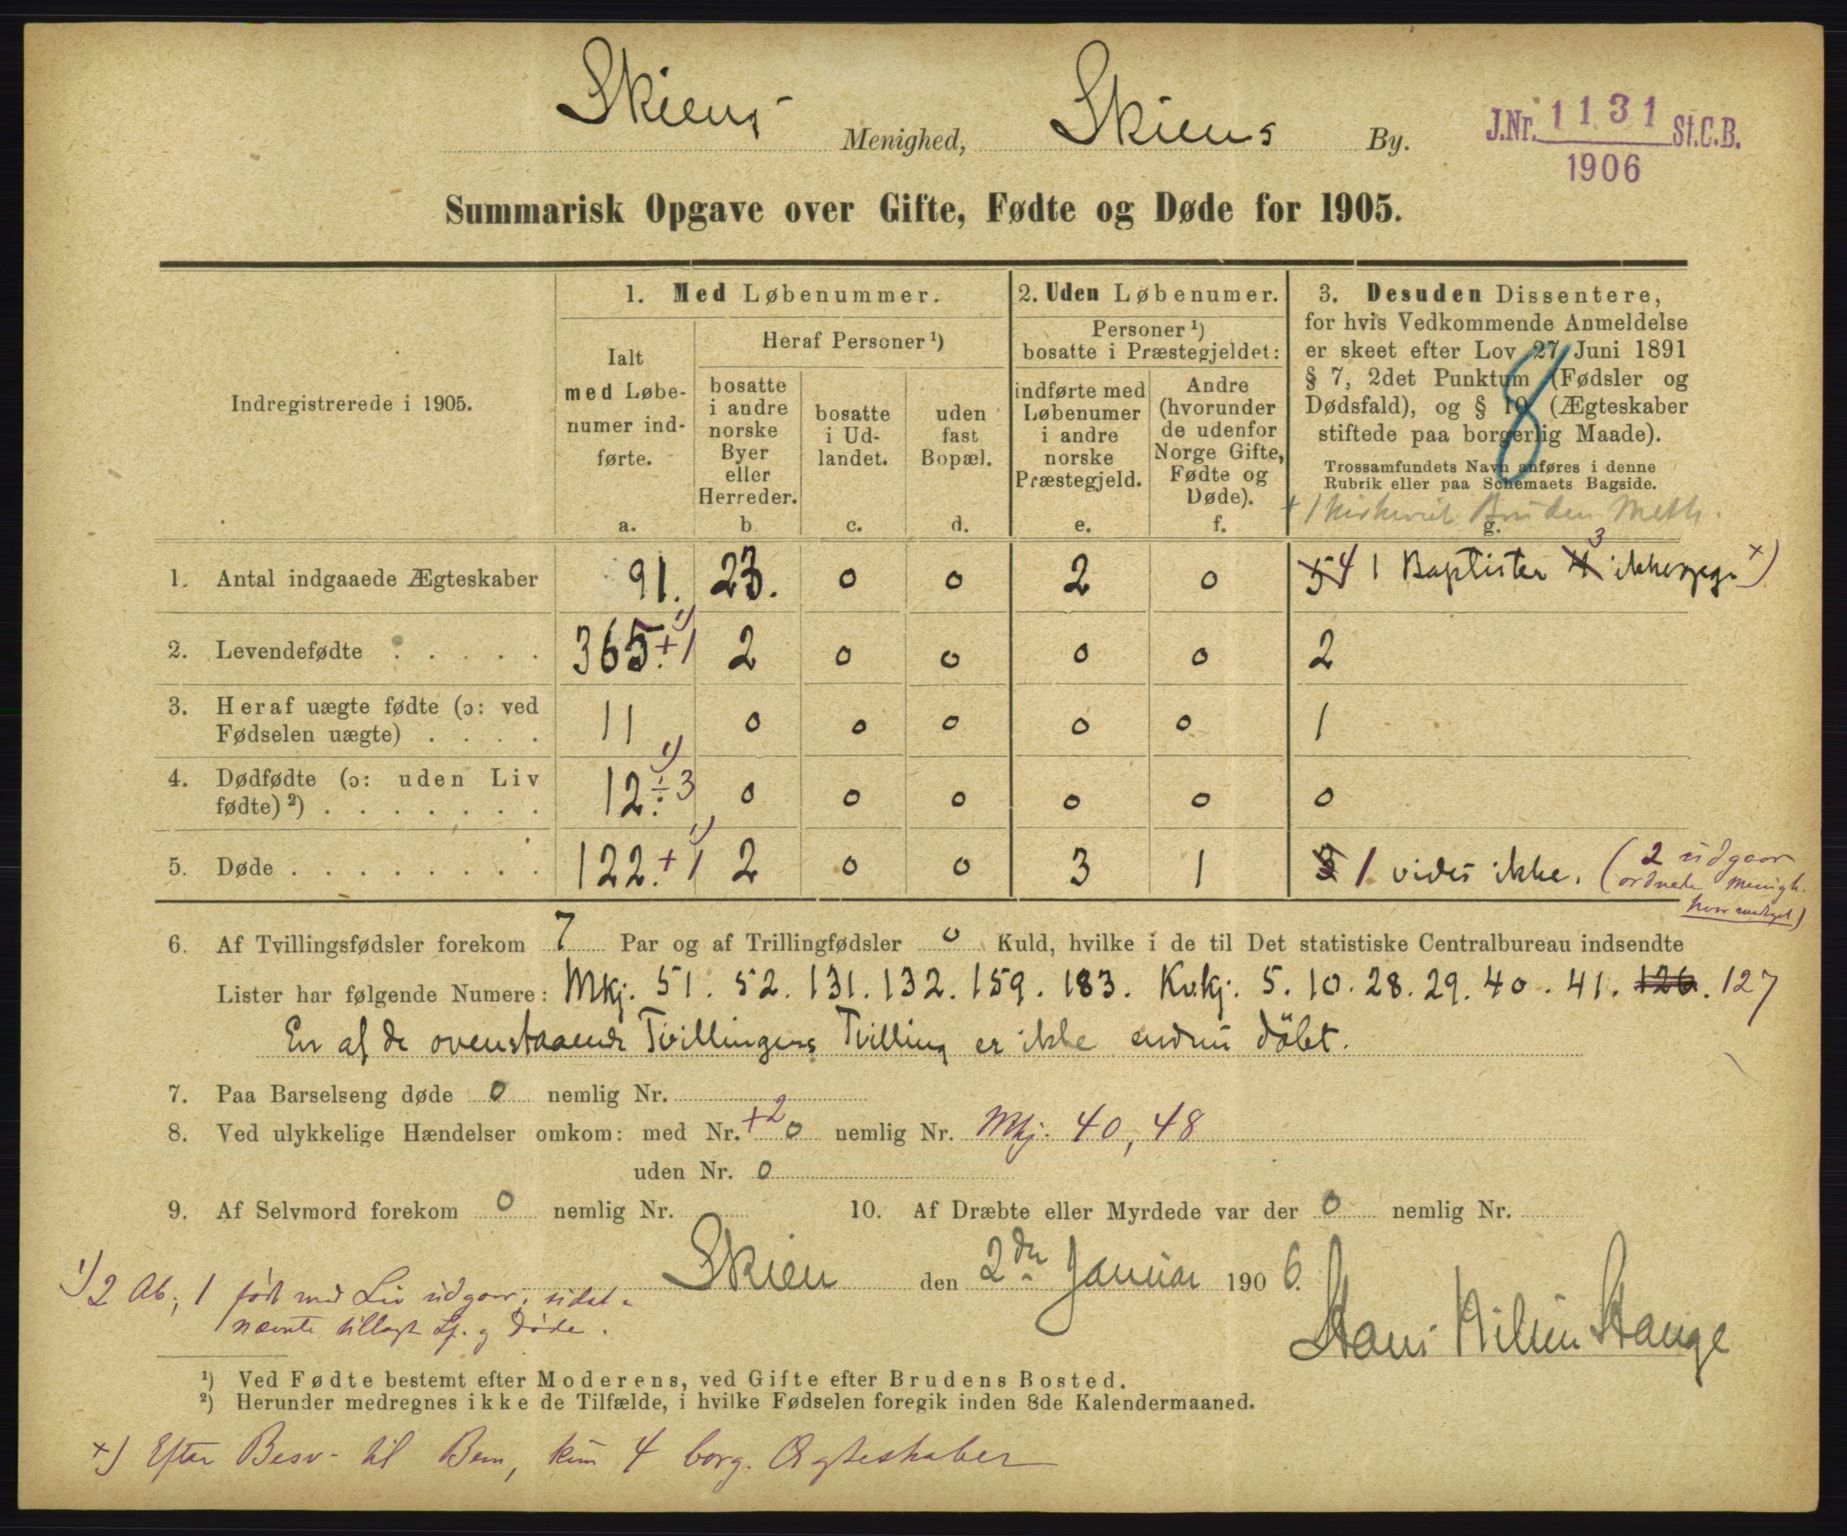 Skiens Menighed, Skiens By.
J.Nr. 1131 St.C.B.
1906
Summarisk Opgave over Gifte, Fødte og Døde for 1905.
Indregistrerede i 1905.
1. Med Løbenummer.
Ialt
med Løbe-
numer ind-
førte.
a.
Heraf Personer ¹)
bosatte
i andre
norske
Byer
eller
Herreder.
b
bosatte
i Ud-
landet.
c.
uden
fast
Bopæl.
d.
2. Uden Løbenumer.
Personer ¹)
bosatte i Præstegjeldet:
indførte med
Løbenumer
i andre
norske
Præstegjeld.
e.
Andre
(hvorunder
de udenfor
Norge Gifte,
Fødte og
Døde).
f.
3. Desuden Dissentere,
for hvis Vedkommende Anmeldelse
er skeet efter Lov 27 Juni 1891
§ 7, 2det Punktum (Fødsler og
Dødsfald), og § 10 (Ægteskaber
stiftede paa borgerlig Maade).
8
Trossamfundets Navn anføres i denne
Rubrik eller paa Schemaets Bagside.
Bruden Meth.
g.
1. Antal indgaaede Ægteskaber 91. 23. 0 0 2 0 5 4 1 Baptister 4 3 +)
2. Levendefødte . . . . . 365. +1 ¹) 2 0 0 0 0 2
3. Heraf uægte fødte (ɔ: ved
Fødselen uægte) . . . . 11 0 0 0 0 0 1
4. Dødfødte (ɔ: uden Liv
fødte) ²) . . . . . . . 12. ÷3 ¹) 0 0 0 0 0 0
5. Døde . . . . . . . . 122. +1 ¹) 2 0 0 3 1 3 1 vides ikke. (2 udgaar
ordnede Menigh.
6. Af Tvillingsfødsler forekom 7 Par og af Trillingfødsler 0 Kuld, hvilke i de til Det statistiske Centralbureau indsendte
Lister har følgende Numere: Mkj. 51. 52. 131. 132. 159. 183. Kvkj. 5. 10. 28. 29. 40. 41. 126. 127
En af de ovenstaaende Tvillingers Tvilling er ikke endnu döbt.
7. Paa Barselseng døde 0 nemlig Nr.
8. Ved ulykkelige Hændelser omkom: med Nr. +2 0 nemlig Nr. Mkj. 40, 48
uden Nr. 0
9. Af Selvmord forekom 0 nemlig Nr. 10. Af Dræbte eller Myrdede var der 0 nemlig Nr.
Skien den 2den Januar 1906.
¹) 2 Ab; 1 født med Liv udgaar; sidst-
nævnte tillagt Lf. og Døde.
Hans Nilsen Hauge
¹) Ved Fødte bestemt efter Moderens, ved Gifte efter Brudens Bosted.
²) Herunder medregnes ikke de Tilfælde, i hvilke Fødselen foregik inden 8de Kalendermaaned.
+) Efter Besv. til Bem, kun 4 borg. Ægteskaber